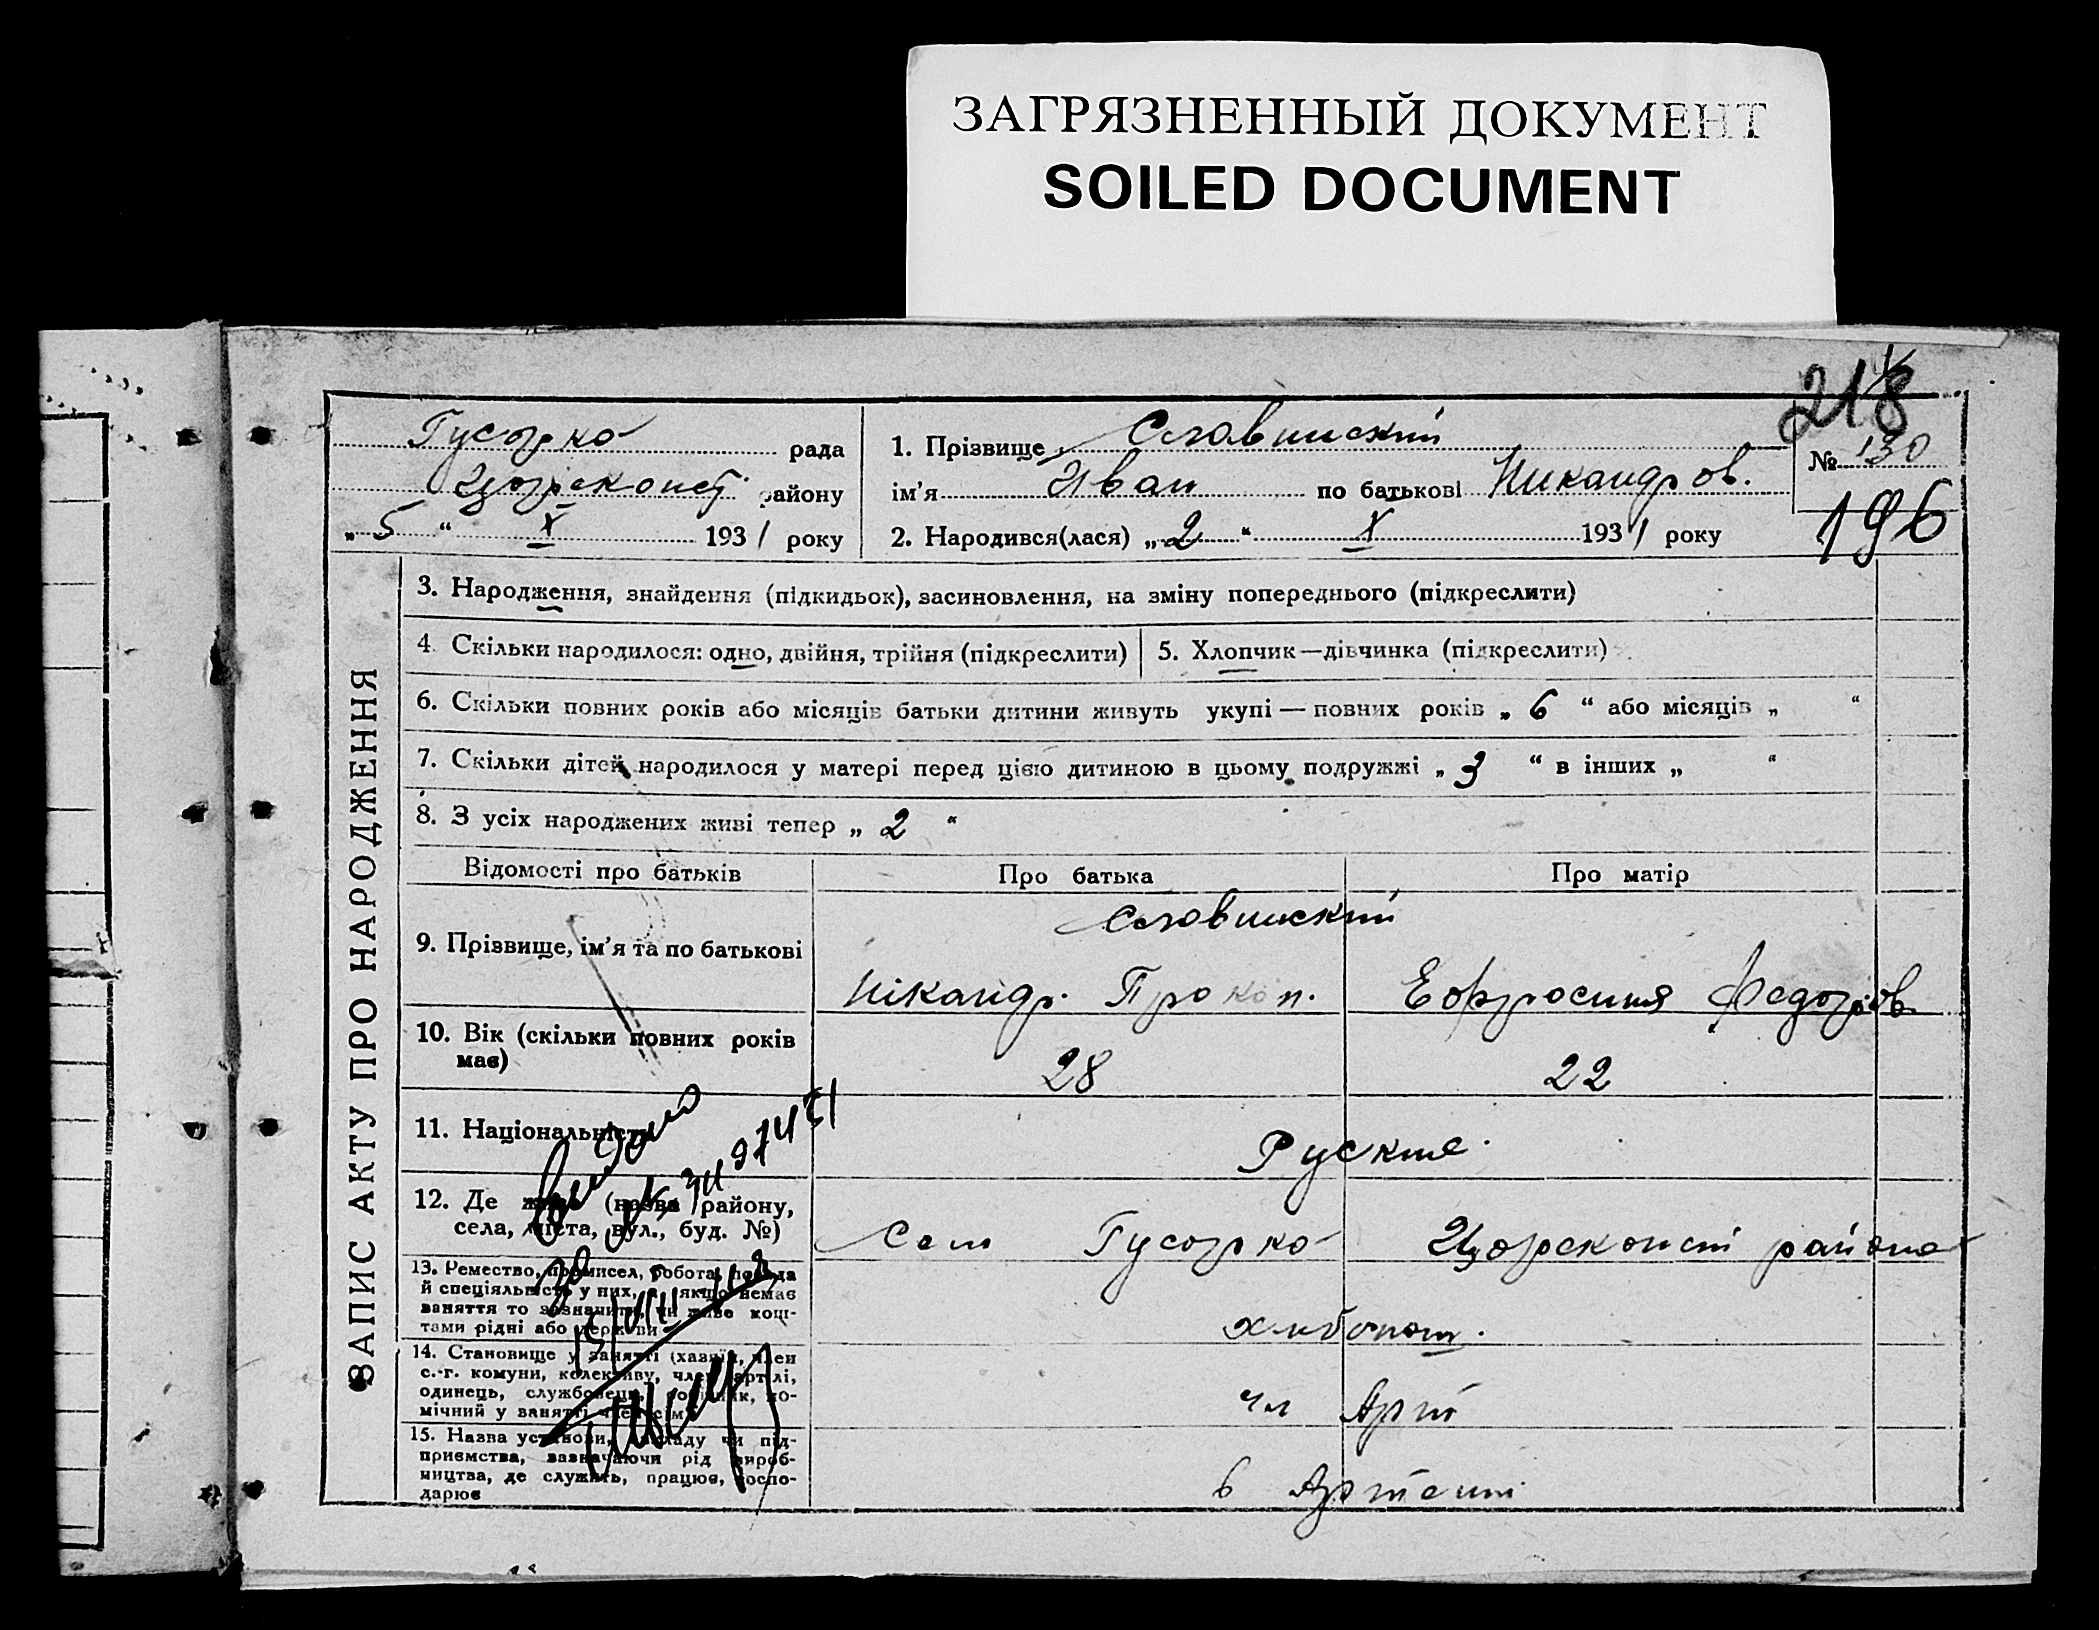 ЗАГРЯЗНЕННЫЙ ДОКУМЕНТ
SOILED DOCUMENT
218
Гусарко рада
району
„ 5 “ X 1931 року
1. Прізвище Славинский
ім'я Иван по батькові Никандров.
2. Народився(лася) „ 2 “ X 1931 року
№ 130
196
ЗАПИС АКТУ ПРО НАРОДЖЕННЯ
3. Народження, знайдення (підкидьок), засиновлення, на зміну попереднього (підкреслити)
4. Скільки народилося: одно, двійня, трійня (підкреслити)
5. Хлопчик—дівчинка (підкреслити)
6. Скільки повних років або місяців батьки дитини живуть укупі — повних років „ 6 “ або місяців „ “
7. Скільки дітей народилося у матері перед цією дитиною в цьому подружжі „ 3 “ в інших „ “
8. З усіх народжених живі тепер „ 2 “
Відомості про батьків
Про батька
Про матір
9. Прізвище, ім'я та по батькові
Славинский
Нікандр. Прокоп.
Ефросиния Федоров
10. Вік (скільки повних років має)
28
22
11. Національність
Руские.
12. Де живе (назва району,
села, міста, вул., буд. №)
Сел Гусарко района
13. Ремество, промисел, робота, посада
й спеціяльність у них, а якщо немає
заняття то зазначити, чи живе кош-
тами рідні або держави
хлебопаш.
14. Становище у занятті (хазяїн, член
с.-г. комуни, колективу, член артілі,
одинець, службовець, робітник, по-
мічний у занятті член сім'ї
чл Арт
15. Назва установи, закладу чи під-
приємства, зазначаючи рід вироб-
ництва, де служить, працює, госпо-
дарює
в Артели